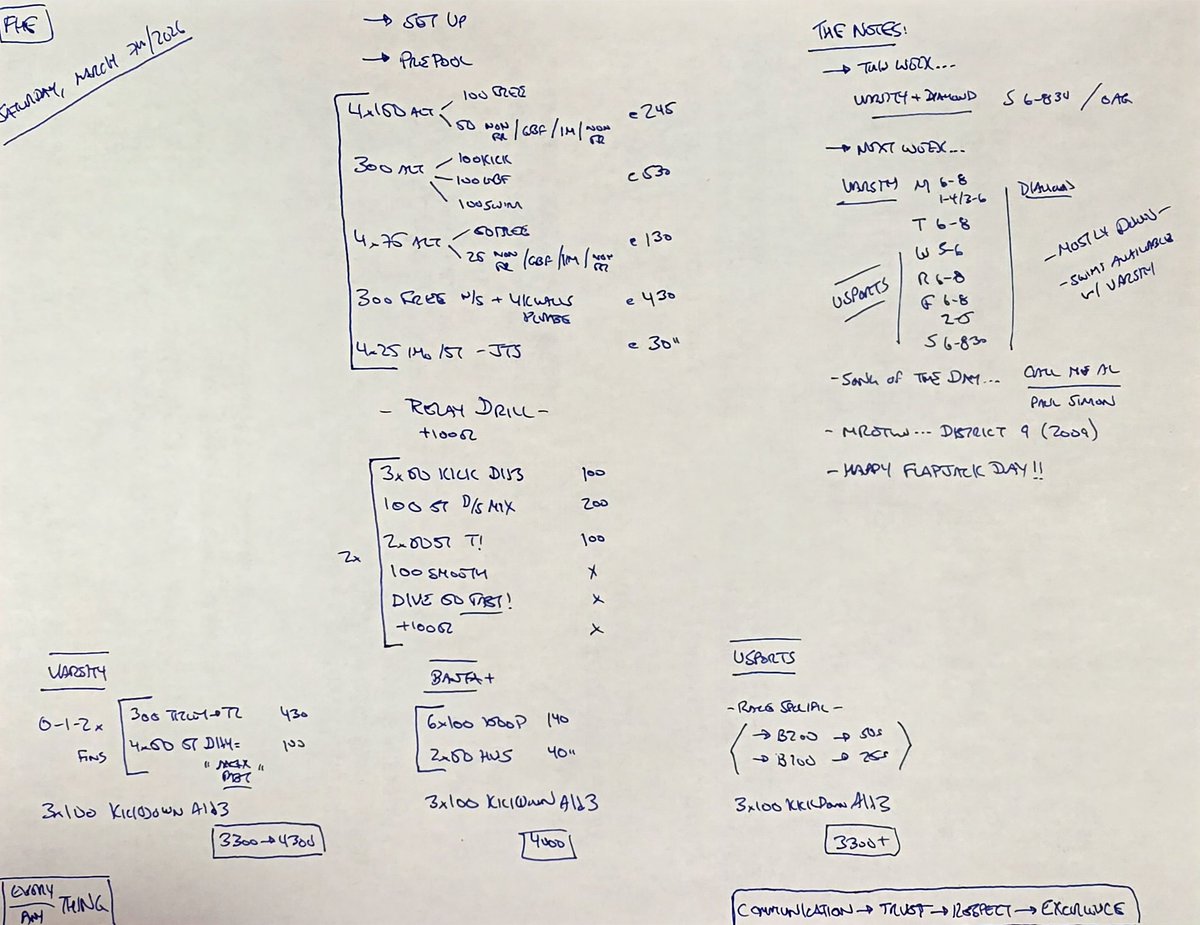 FHE
SATURDAY, MARCH 7TH/2026
→ SET UP
→ PREPOOL
4x150 ALT
100 FREE
50 NON FR/GBF/IM/NON FR
@ 245
300 ALT
100 KICK
100 GBF
100 SWIM
@ 530
4x75 ALT
50 FREE
25 NON FR/GBF/IM/NON FR
@ 130
300 FREE N/S + 4K WALLS
PLEASE
@ 430
4x25 IMO/ST - JTS
@ 30"
- RELAY DRILL -
+100Ω
2x
3x50 KICK D1J3 100
100 ST D/S MIX 200
2x50 ST T! 100
100 SMOOTH X
DIVE 50 FAST! X
+100Ω X
VARSITY
0-1-2x
FINS
300 430
4x50 ST D1→4= 100
"MAX
3x100 KICK DOWN A1J3
3300→4300
EVERY
ANY
THING
BANTA+
6x100 140
2x50 40"
3x100 KICK DOWN A1J3
4000
USPORTS
- RACE SPECIAL -
→ B200 → 50s
→ B100 → 25s
3x100 KICK DOWN A1J3
3300+
THE NOTES:
→ THIS WEEK...
VARSITY + DIAMOND S 6-830 / OAG
→ NEXT WEEK...
VARSITY M 6-8
1-4/3-6
T 6-8
W 5-6
R 6-8
F 6-8
2-5
S 6-830
USPORTS
DIAMOND
- MOSTLY DOWN -
- SWIMS AVAILABLE
w/ VARSITY
- SONG OF THE DAY... CALL ME AL
PAUL SIMON
- MROTW... DISTRICT 9 (2009)
- HAPPY FLAPJACK DAY!!
COMMUNICATION → TRUST → RESPECT → EXCELLENCE